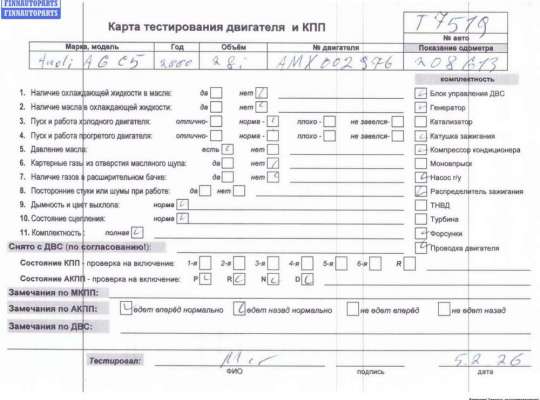 FINNAUTOPARTS
FINNAUTOPARTS
Карта тестирования двигателя и КПП
T7519
№ авто
Марка, модель Год Объём № двигателя Показание одометра
Audi A6 C5 2000 2.8i AMX002976 208613
комплектность
1. Наличие охлаждающей жидкости в масле: да нет
Блок управления ДВС
2. Наличие масла в охлаждающей жидкости: да нет
Генератор
3. Пуск и работа холодного двигателя: отлично- норма - плохо - не завелся-
Катализатор
4. Пуск и работа прогретого двигателя: отлично- норма - плохо - не завелся-
Катушка зажигания
5. Давление масла: есть нет
Компрессор кондиционера
6. Картерные газы из отверстия масляного щупа: да нет
Моновпрыск
7. Наличие газов в расширительном бачке: да нет
Насос г/у
8. Посторонние стуки или шумы при работе: да нет
Распределитель зажигания
9. Дымность и цвет выхлопа: норма
ТНВД
10. Состояние сцепления: норма
Турбина
11. Комплектность: полная
Форсунки
Снято с ДВС (по согласованию!):
Проводка двигателя
Состояние КПП - проверка на включение: 1-я 2-я 3-я 4-я 5-я 6-я R
Состояние АКПП - проверка на включение: P R N D
Замечания по МКПП:
Замечания по АКПП: едет вперёд нормально едет назад нормально не едет вперёд не едет назад
Замечания по ДВС:
Тестировал: 5.2 26
ФИО подпись дата